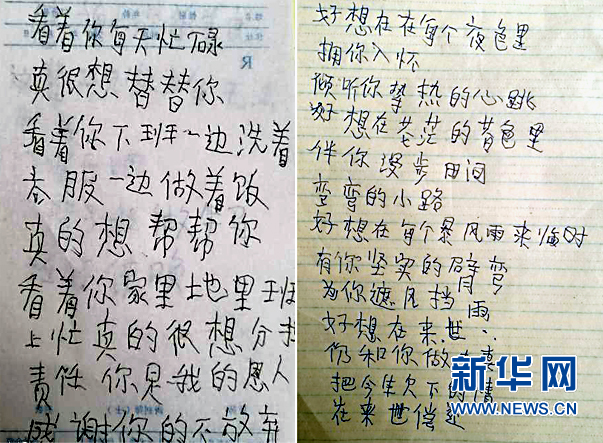 看着你每天忙碌
真很想替替你
看着你下班一边洗着
衣服一边做着饭
真的想帮帮你
看着你家里地里班
上忙真的很想分担
责任 你是我的恩人
感谢你的不放弃
好想在在每个夜色里
拥你入怀
倾听你挚热的心跳
好想在茫茫的暮色里
伴你漫步田间
弯弯的小路
好想在每个暴风雨来临时
有你坚实的臂弯
为你遮风挡雨
好想在来世
仍和你做
把今生欠下的情
在来世偿还
新华网
WWW.NEWS.CN